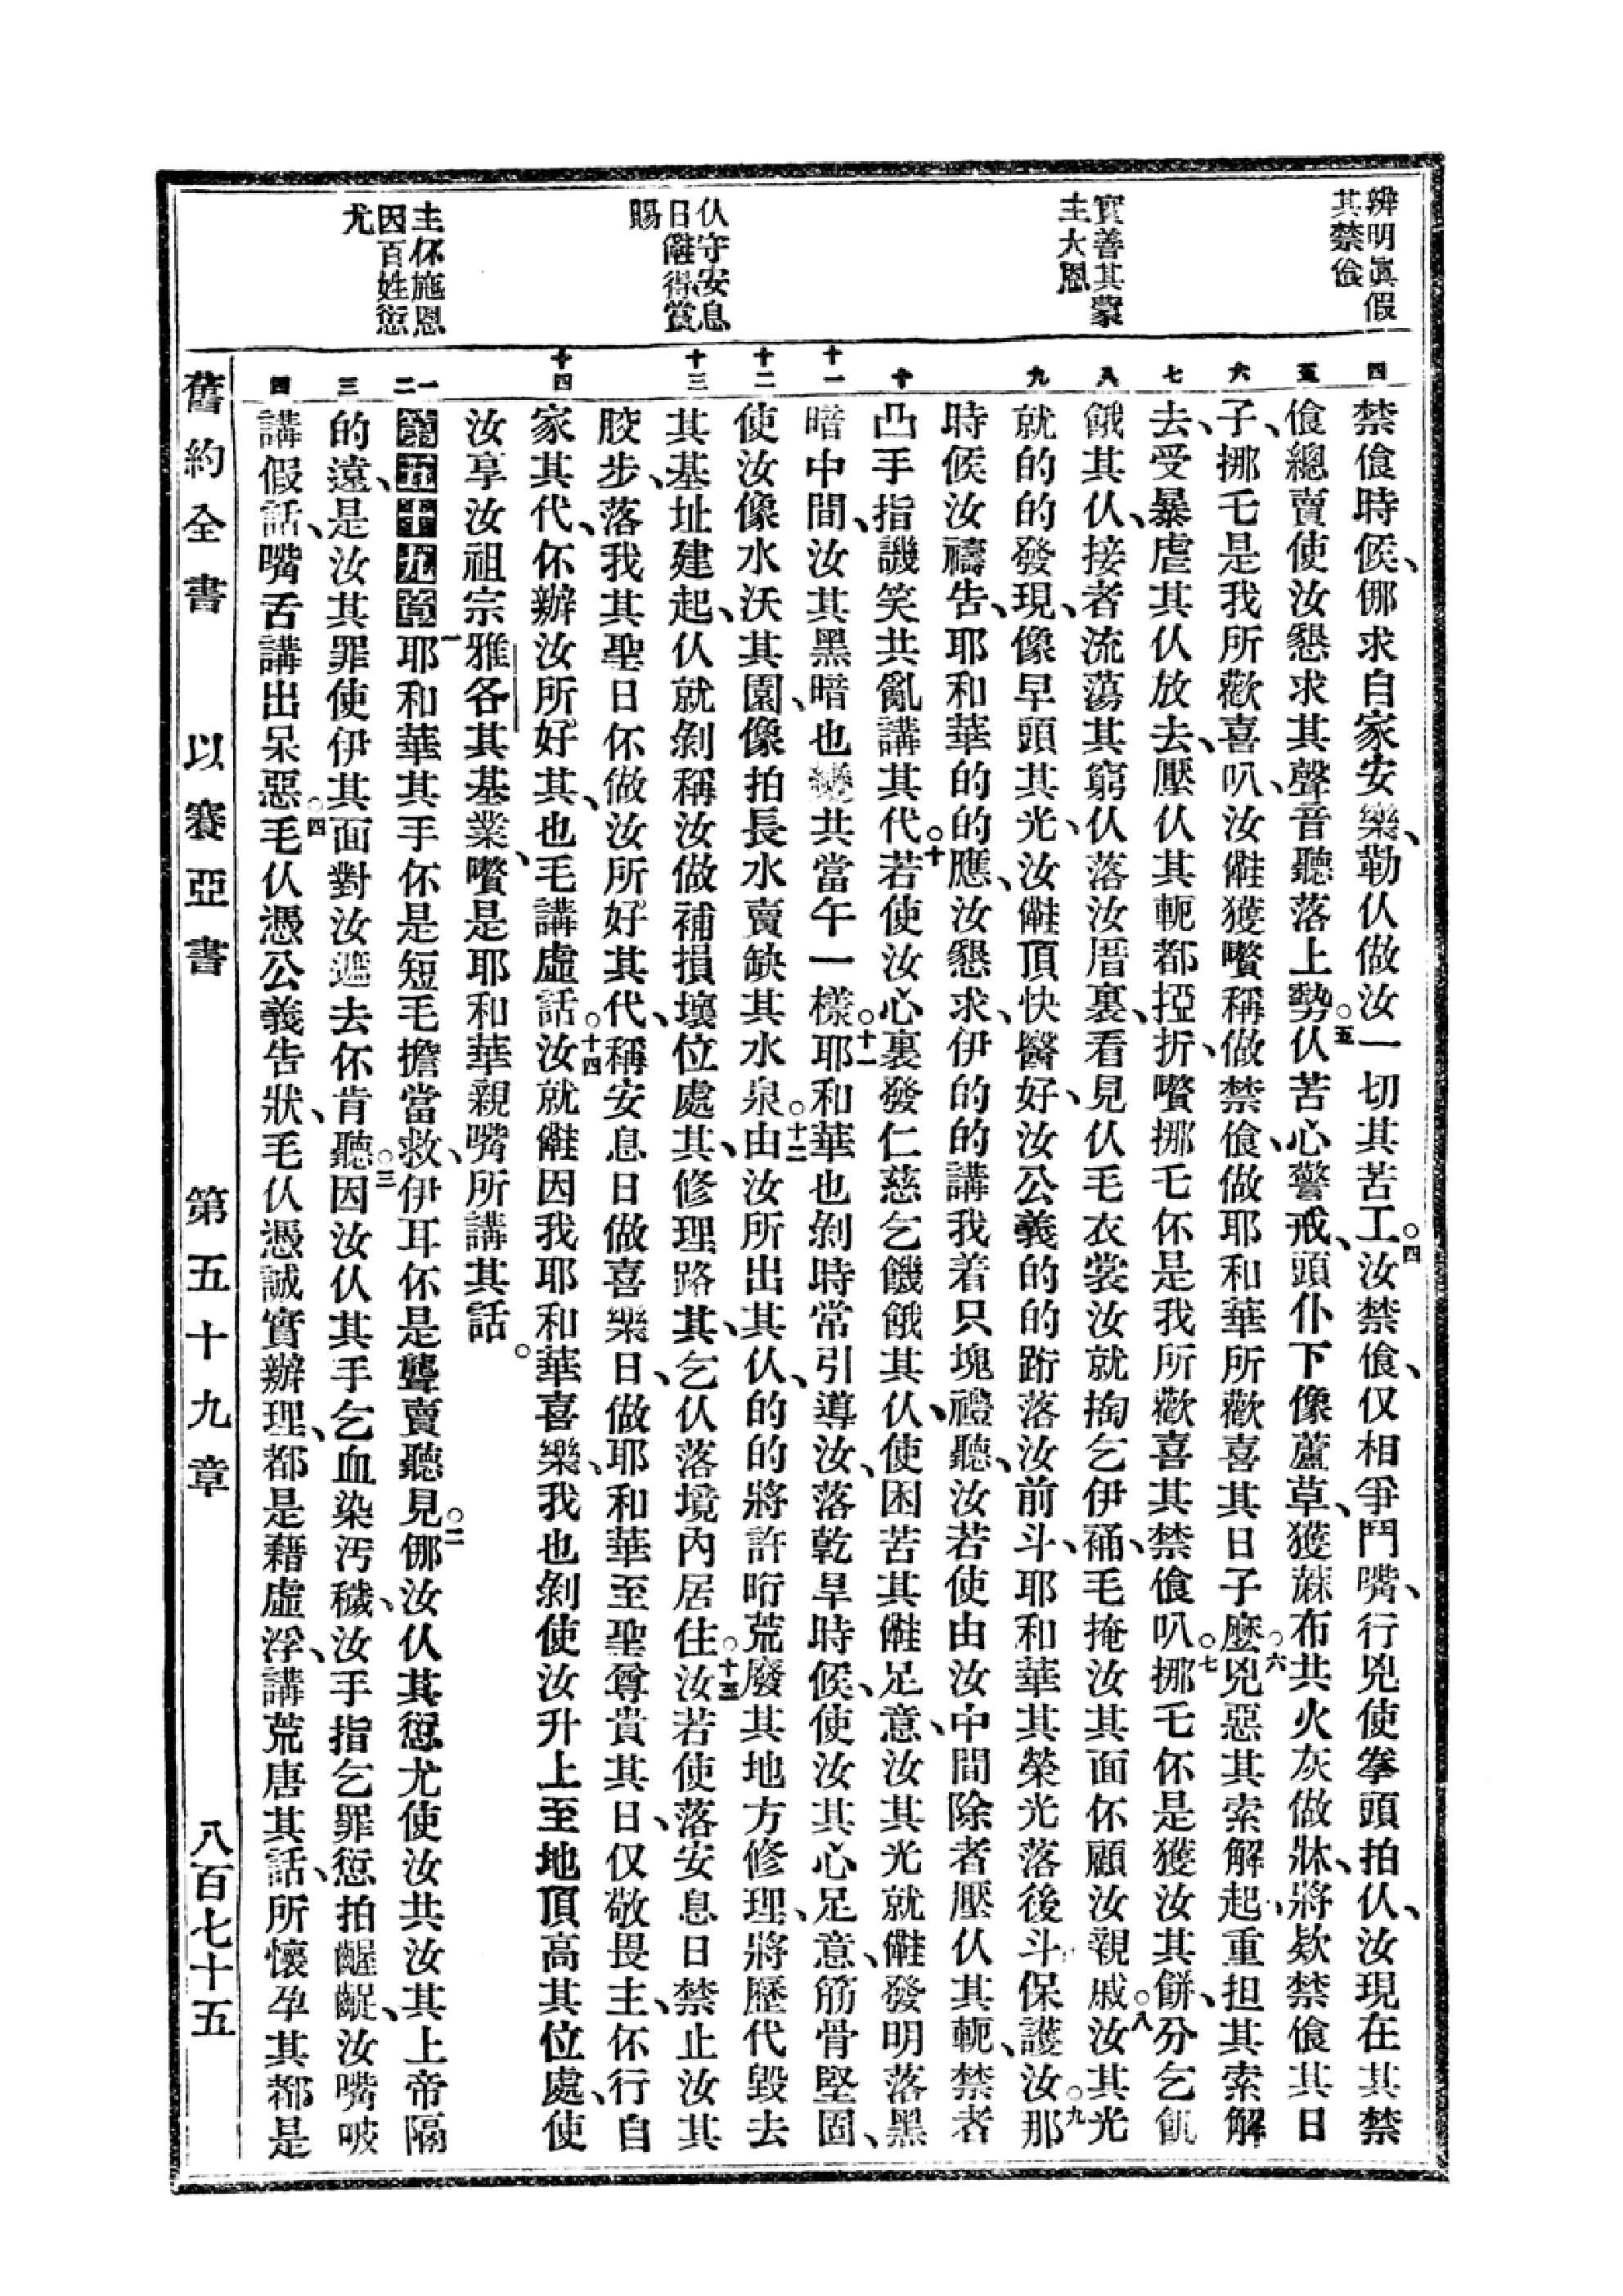 辨明眞假
其禁飠僉
實善其蒙
主大恩
仈守安息
日𠆧得賞
賜
主伓施恩
因百姓愆
尤
四 五 六 七 八 九 十 十一 十二 十三 十四 一二 三 四
禁飠時候、㑚求自家安樂、勒仈做汝一切其苦工。四汝禁飠、仅相爭鬥嘴、行兇使拳頭拍仈、汝現在其禁
飠總賣使汝懇求其聲音聽落上勢。五仈苦心警戒、頭仆下像蘆草、獲蔴布共火灰做牀、將欵禁飠其日
子、挪乇是我所歡喜叭、汝𠆧獲嚽稱做禁飠、做耶和華所歡喜其日子麼。六兇惡其索解起、重担其索解
去、受暴虐其仈放去、壓仈其軛都掗折、嚽挪乇伓是我所歡喜其禁飠叭。七挪乇伓是獲汝其餅、分乞飢
餓其仈、接者流蕩其窮仈落汝厝裏、看見仈毛衣裳汝就掏乞伊䘄、毛掩汝其面伓顧汝親戚。八汝其光
就的的發現、像早頭其光、汝𠆧頂快醫好、汝公義的的跕落汝前斗、耶和華其榮光落後斗保護汝。九那
時候汝禱告、耶和華的的應、汝懇求、伊的的講我着只塊禮聽、汝若使由汝中間除者壓仈其軛、禁者
凸手指譏笑共亂講其代。十若使汝心裏發仁慈乞饑餓其仈、使困苦其𠆧足意、汝其光就𠆧發明落黑
暗中間、汝其黑暗也變共當午一樣。十一耶和華也剝時常引導汝、落乾旱時候、使汝其心足意、筋骨堅固、
使汝像水沃其園、像拍長水賣缺其水泉。十二由汝所出其仈、的的將許昨荒廢其地方修理、將歷代毀去
其基址建起、仈就剝稱汝做補損壞位處其、修理路其、乞仈落境內居住。十三汝若使落安息日禁止汝其
骹步、落我其聖日伓做汝所好其代、稱安息日做喜樂日、做耶和華至聖尊貴其日、仅敬畏主、伓行自
家其代、伓辦汝所好其、也毛講虛話。十四汝就𠆧因我耶和華喜樂、我也剝使汝升上至地頂高其位處、使
汝享汝祖宗雅各其基業、嚽是耶和華親嘴所講其話。
第五十九章一耶和華其手伓是短毛擔當救、伊耳伓是聾賣聽見。二㑚汝仈其愆尤使汝共汝其上帝隔
的遠、是汝其罪使伊其面對汝遮去伓肯聽。三因汝仈其手乞血染汚穢、汝手指乞罪愆拍齷齪、汝嘴唆
講假話、嘴舌講出呆惡。四毛仈憑公義告狀、毛仈憑誠實辦理、都是藉虛浮、講荒唐其話、所懷孕其都是
舊約全書 以賽亞書 第五十九章 八百七十五